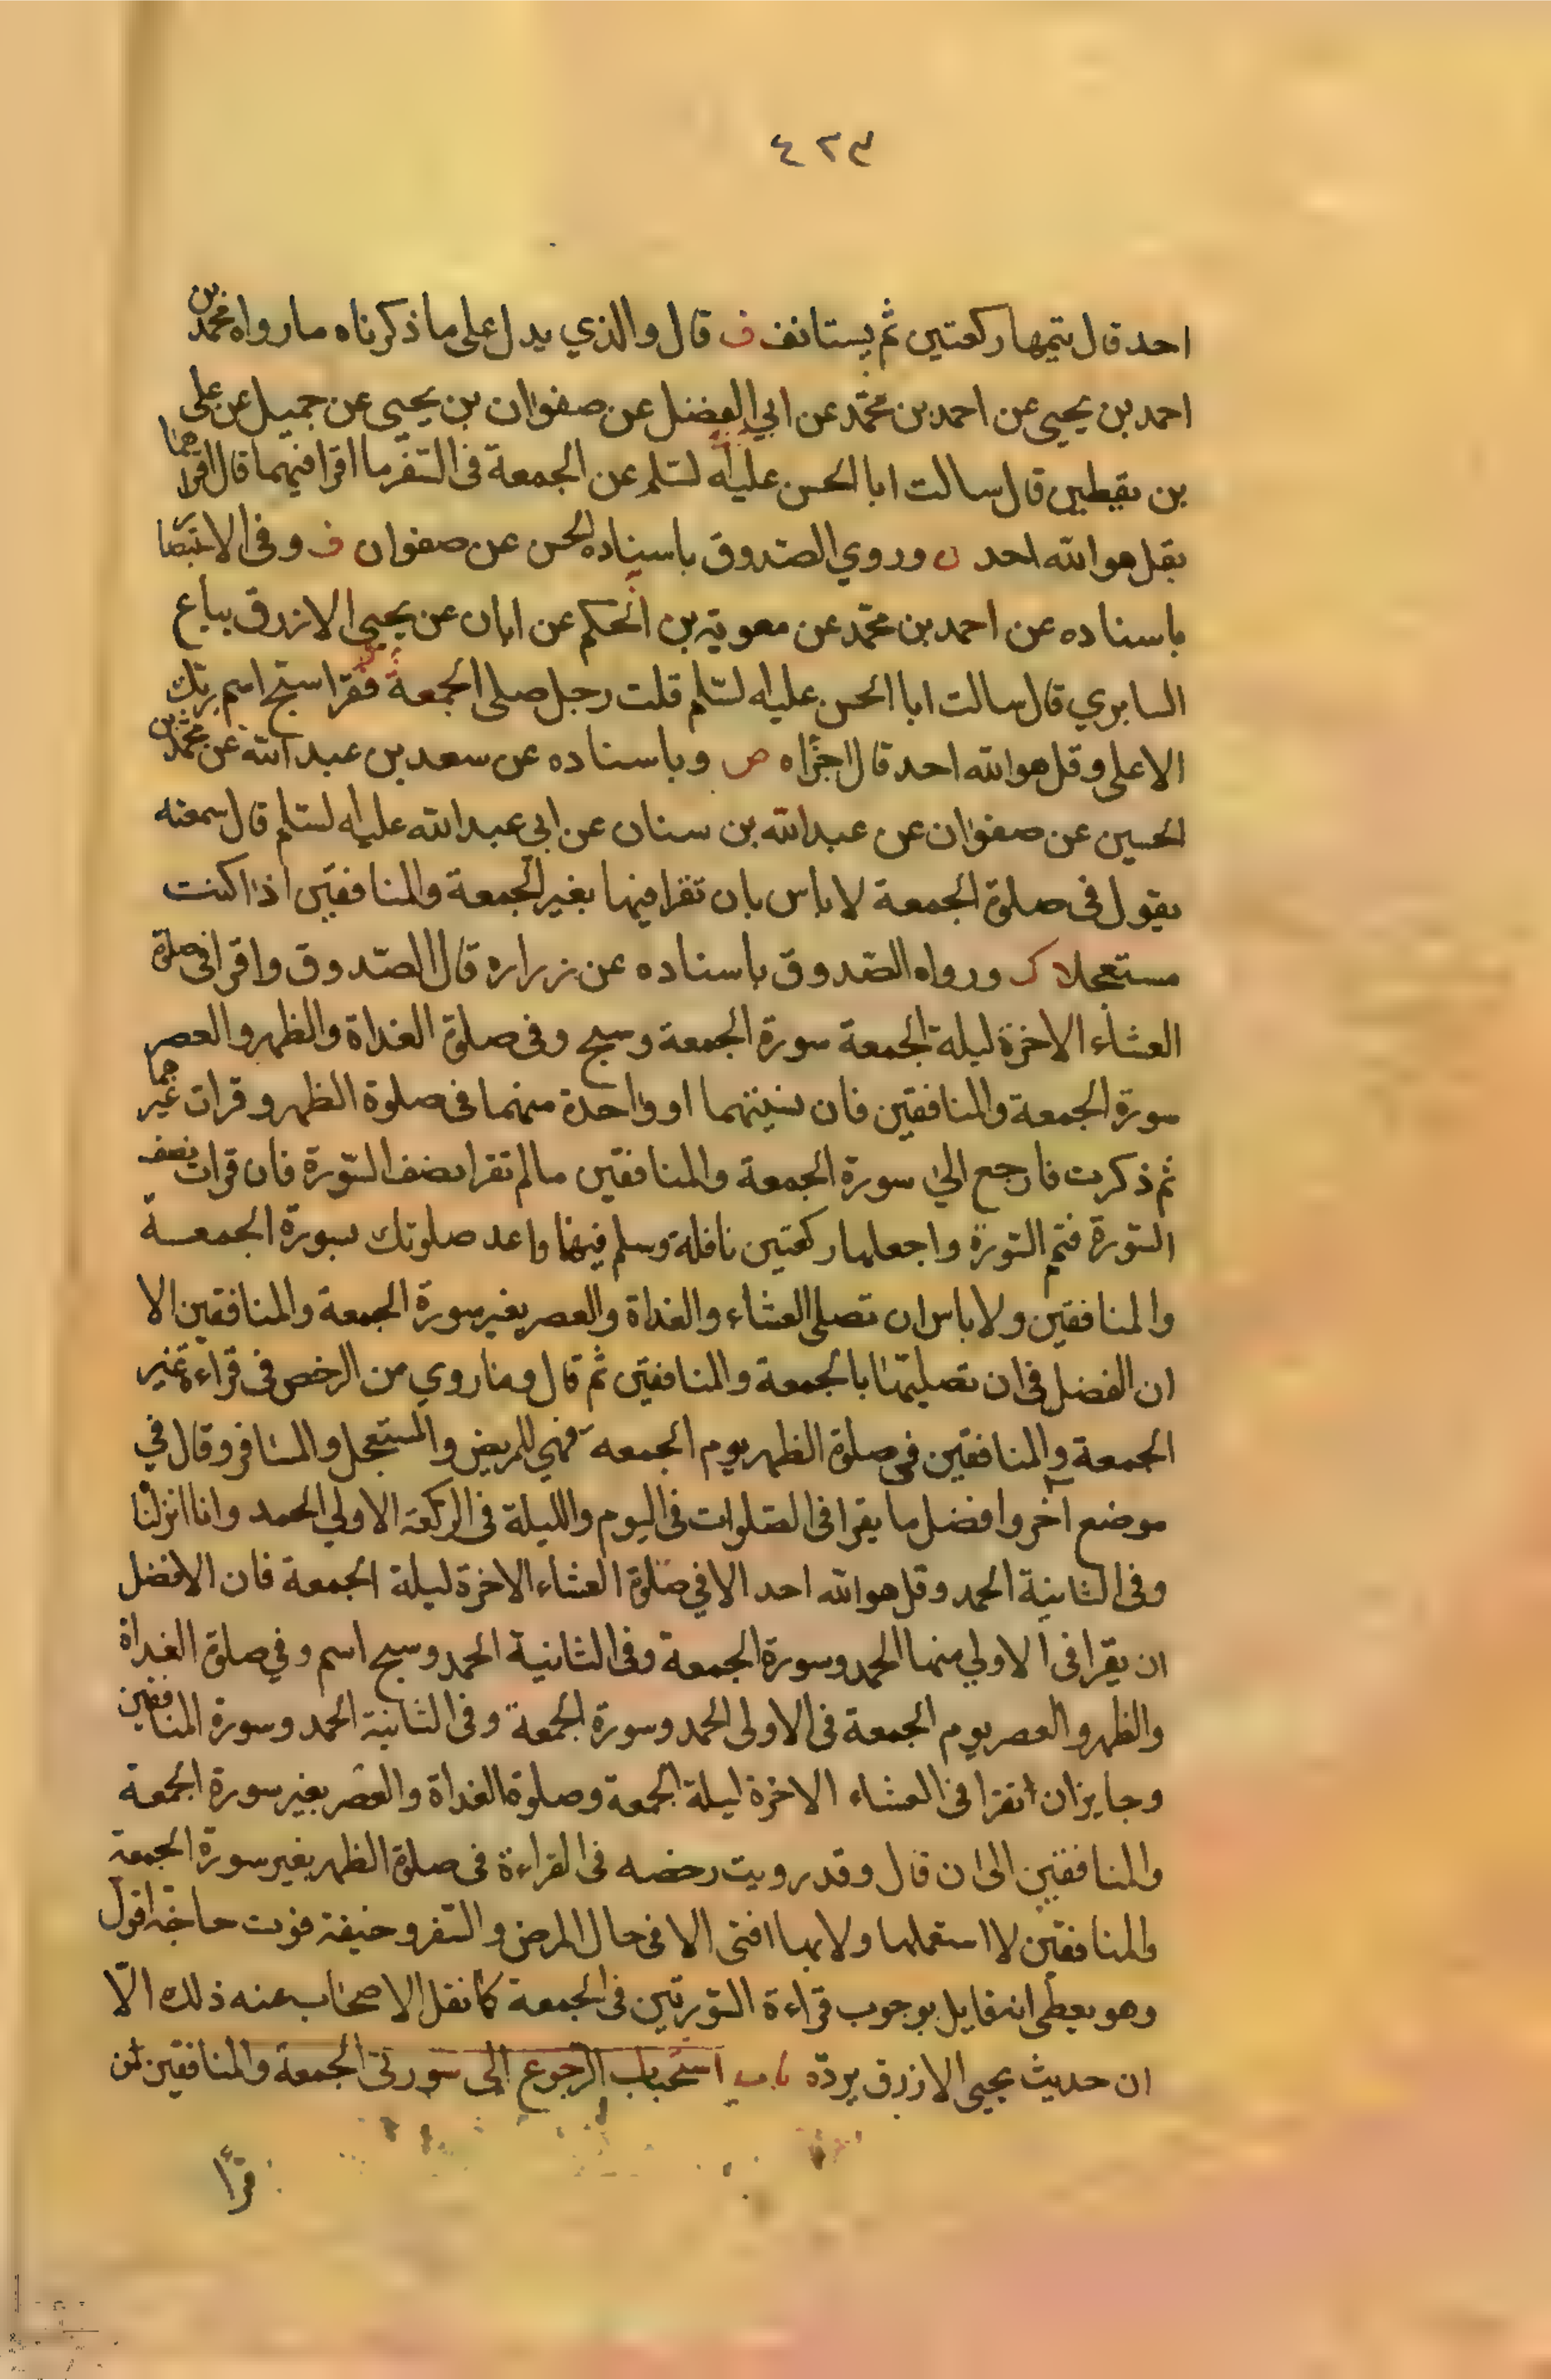 ٤٢٣
احد قال يتمها ركعتين ثم يستانف ف قال والذي يدل على ما ذكرناه ما رواه محمد بن
احمد بن يحيى عن احمد بن محمد عن ابي الفضل عن صفوان بن يحيى عن جميل عن على
بن يقطين قال سالت ابا الحسن عليه لسلم عن الجمعة فى السفر ما اقرا فيهما قال اقراهما
بقل هو الله احد ن وروي الصدوق باسناده الحسن عن صفوان ف وفى الاستبصا
باسناده عن احمد بن محمد عن معوية بن الحكم عن ابان عن يحيى الازرق بياع
السابري قال سالت ابا الحسن عليه لسلم قلت رجل صلى الجمعة فقرا سبح اسم ربك
الاعلى وقل هو الله احد قال اجزاه ص وباسناده عن سعد بن عبد الله عن محمد بن
الحسين عن صفوان عن عبد الله بن سنان عن ابى عبد الله عليه لسلم قال سمعته
يقول فى صلوة الجمعة لا باس بان تقرا فيها بغير الجمعة والمنافقين اذا كنت
مستعجلا ك ورواه الصدوق باسناده عن زراره قال الصدوق واقرا فى صلوة
العشاء الاخرة ليلة الجمعة سورة الجمعة وسبح وفى صلوة الغداة والظهر والعصر
سورة الجمعة والمنافقين فان نسيتهما او واحدة منهما فى صلوة الظهر وقرات غيرهما
ثم ذكرت فارجع الي سورة الجمعة والمنافقين ما لم تقرا نصف السورة فان قرات نصف
السورة فتم السورة واجعلها ركعتين نافلة وسلم فيهما واعد صلوتك بسورة الجمعة
والمنافقين ولا باس ان تصلى العشاء والغداة والعصر بغير سورة الجمعة والمنافقين الا
ان الفضل فى ان تصليها بالجمعة والمنافقين ثم قال وما روي من الرخص فى قراءة غير
الجمعة والمنافقين فى صلوة الظهر يوم الجمعه فهي للمريض والمستعجل والمسافر وقال في
موضع آخر وافضل ما يقرا فى الصلوات فى اليوم والليلة فى الركعة الاولي الحمد وانا انزلنا
وفى الثانية الحمد وقل هو الله احد الا في صلوة العشاء الاخرة ليلة الجمعة فان الافضل
ان يقرا فى الاولي منها الحمد وسورة الجمعة وفى الثانية الحمد وسبح اسم وفي صلوة الغداة
والظهر والعصر يوم الجمعة فى الاولى الحمد وسورة الجمعة وفى الثانية الحمد وسورة المنافقين
وجايز ان تقرا فى العشاء الاخرة ليلة الجمعة وصلوة الغداة والعصر بغير سورة الجمعة
والمنافقين الى ان قال وقد رويت رخصه فى القراءة فى صلوة الظهر بغير سورة الجمعة
والمنافقين لا استعملها ولا بها افتى الا فى حال المرض والسفر وخيفة فوت حاجة اقول
وهو يعطى انه قايل بوجوب قراءة السورتين فى الجمعة كما نقل الاصحاب عنه ذلك الّا
ان حديث يحيى الازرق يردّه باب استحباب الرجوع الى سورتى الجمعة والمنافقين لمن
قرأ